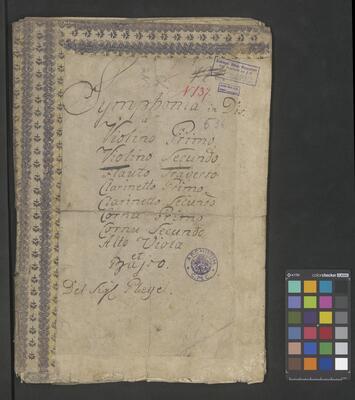 N 137.
Symphonia in Dis.
636
a
Violino Primo
Violino Secundo
Flauto Traverso
Clarinetto Primo
Clarinetto Secundo
Cornu Primo
Cornu Secundo
Alto Viola
et
Basso.
Del Sigl Pleyel.
ARCHIVUM
colorchecker